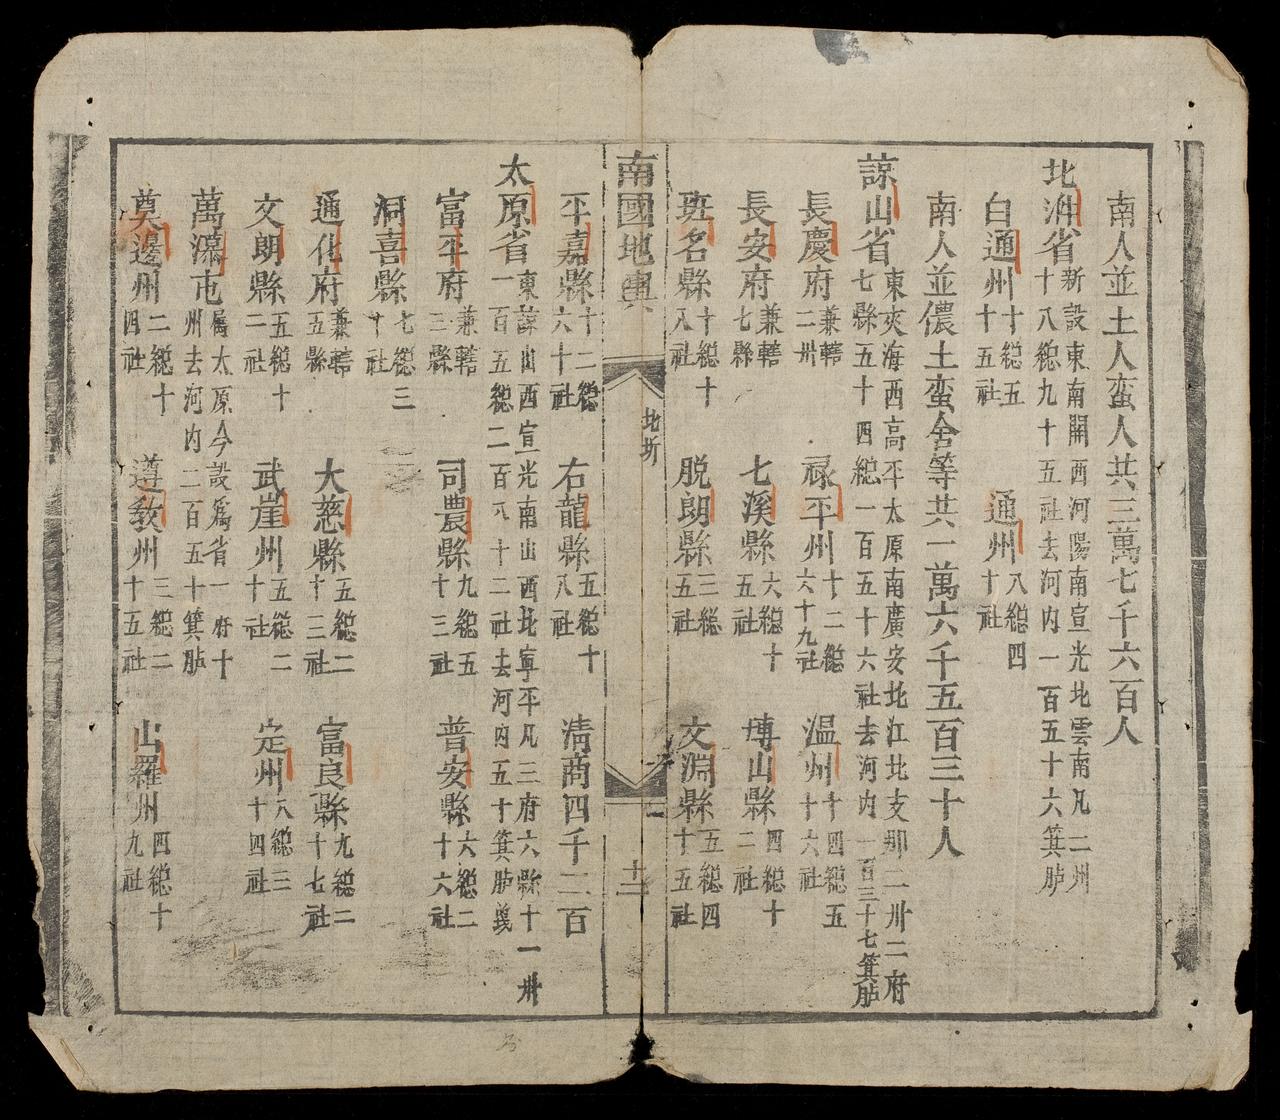 南人並土人蛮人共三萬七千六百人
北𣴓省 新設東南開西河陽南宣光北雲南凡二州
十八總九十五社去河内一百五十六箕胪
白通州 十總五十五社 通州 八總四十社
南人並儂土蛮舍等共一萬六千五百三十人
諒山省 東夾海西高平太原南廣安北江北支那二卅二府
七縣五十四總一百五十六社去河内一百三十七箕胪
長慶府 兼轄二卅 禄平州 十二總六十九社 温州 十四總五十六社
長安府 兼轄七縣 七溪縣 六總十五社 博山縣 四總十二社
班名縣 十總十八社 脱朗縣 三總五社 文淵縣 五總四十五社
南國地輿
北圻
十二
平嘉縣 十二總六十社 右龍縣 五總十八社 清商四千二百
太原省 東諒山西宣光南山西北寧平凡三府六縣十一卅
一百五總二百八十二社去河内五十箕胪義
富平府 兼轄三縣 司農縣 九總五十三社 普安縣 六總二十六社
洞喜縣 七總三十社
通化府 兼轄五縣 大慈縣 五總二十三社 富良縣 九總二十七社
文朗縣 五總十二社 武崖州 五總二十社 定州 八總三十四社
萬藻屯 屬太原今設爲省一府十
州去河内二百五十箕胪
奠邊州 二總十四社 遵教州 三總二十五社 山羅州 四總十九社